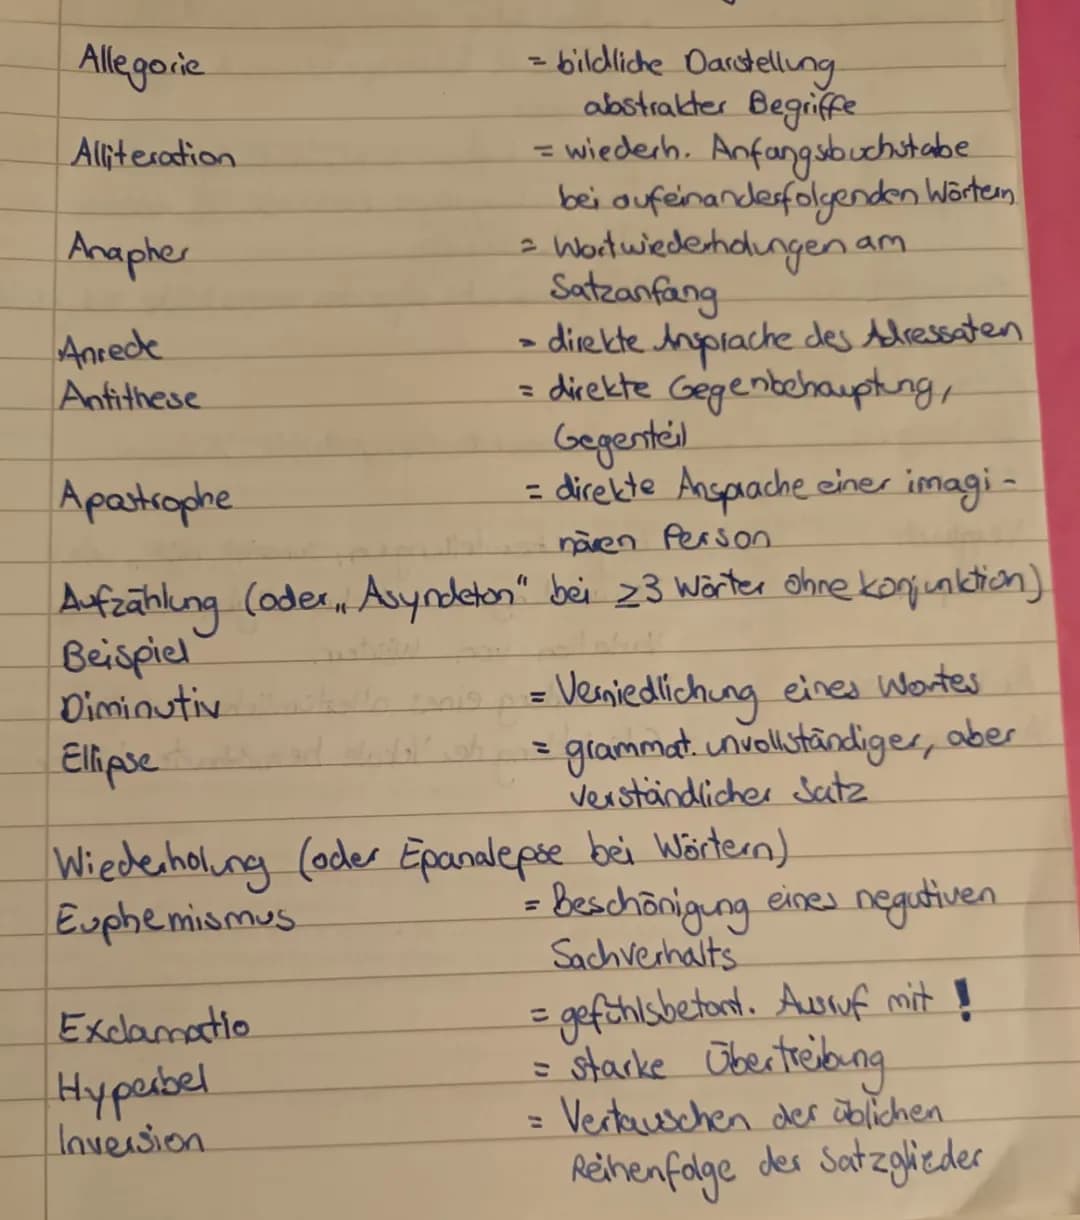 Allegorie = bildliche Darstellung
abstrakter Begriffe
Alliteration = wiederh. Anfangsbuchstabe
bei aufeinanderfolgenden Wörtern
Anapher = Wortwiederholungen am
Satzanfang
Anrede = direkte Ansprache des Adressaten
Antithese = direkte Gegenbehauptung,
Gegenteil
Apastrophe = direkte Ansprache einer imagi-
nären Person
Aufzählung (oder „Asyndeton" bei ≥3 Wörter ohne konjunktion)
Beispiel
Diminutiv = Verniedlichung eines Wortes
Ellipse = grammat. unvollständiger, aber
verständlicher Satz
Wiederholung (oder Epanalepse bei Wörtern)
Euphemismus = Beschönigung eines negativen
Sachverhalts
Exclamatio = gefühlsbetont. Ausruf mit !
Hyperbel = starke Übertreibung
Inversion = Vertauschen der üblichen
Reihenfolge der Satzglieder